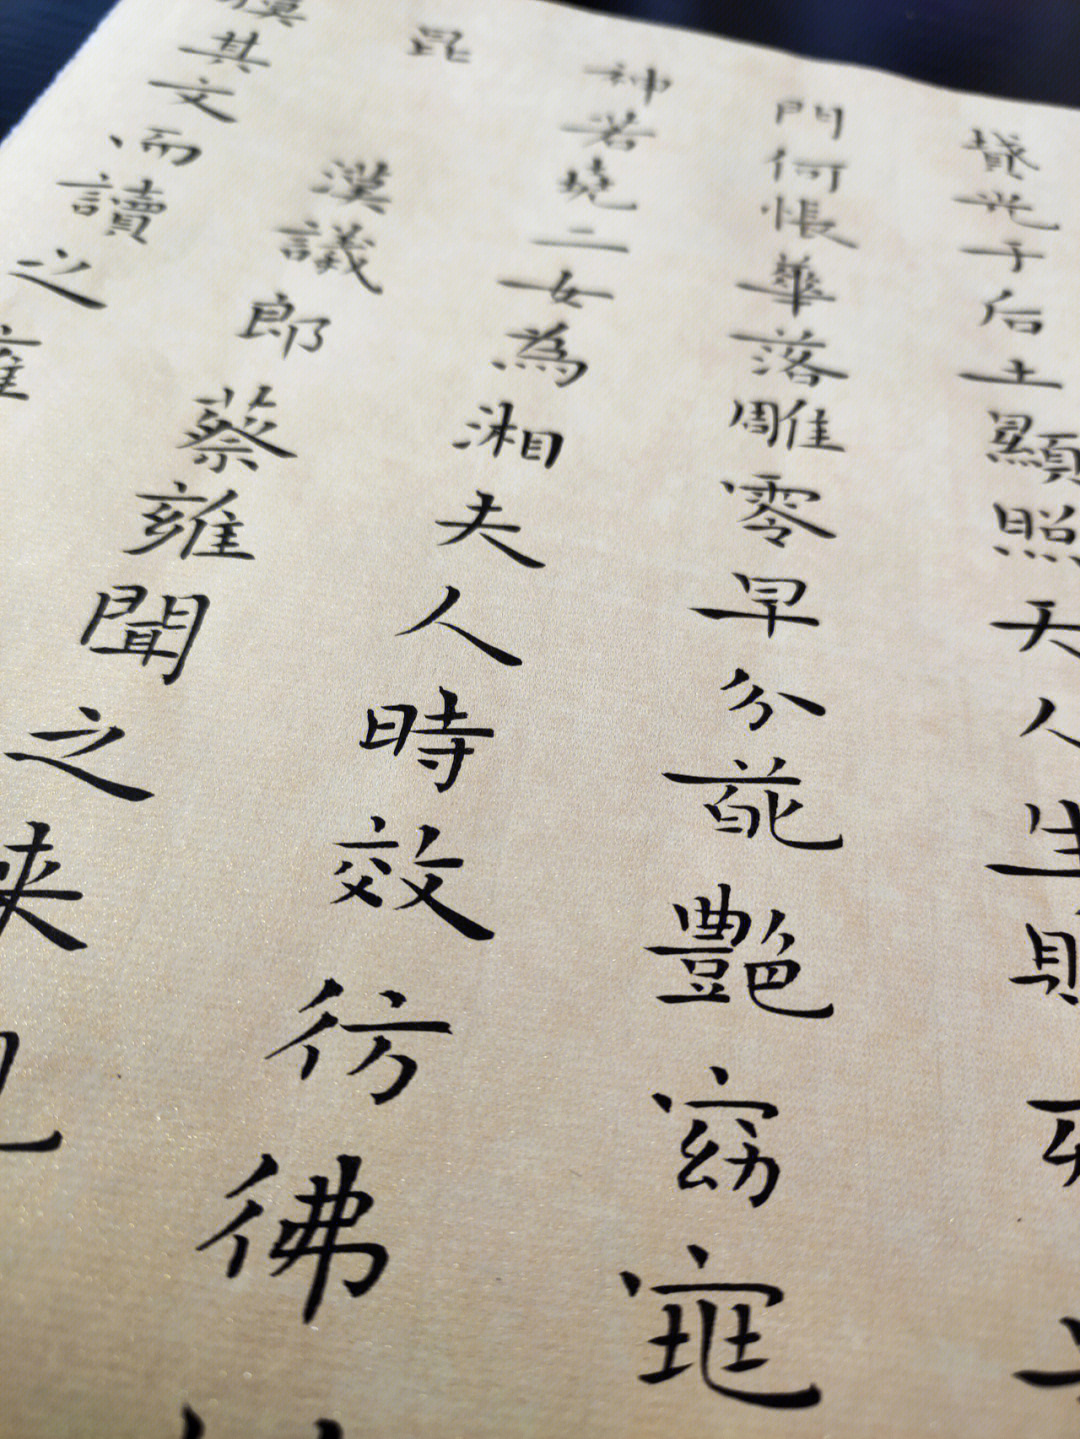 墳光于后土顯照天人生賤死
門何悵華落雕零早分葩艷窈窕
神若堯二女為湘夫人時效彷彿
昆
漢議郎蔡雍聞之来
摸其文而讀之雍